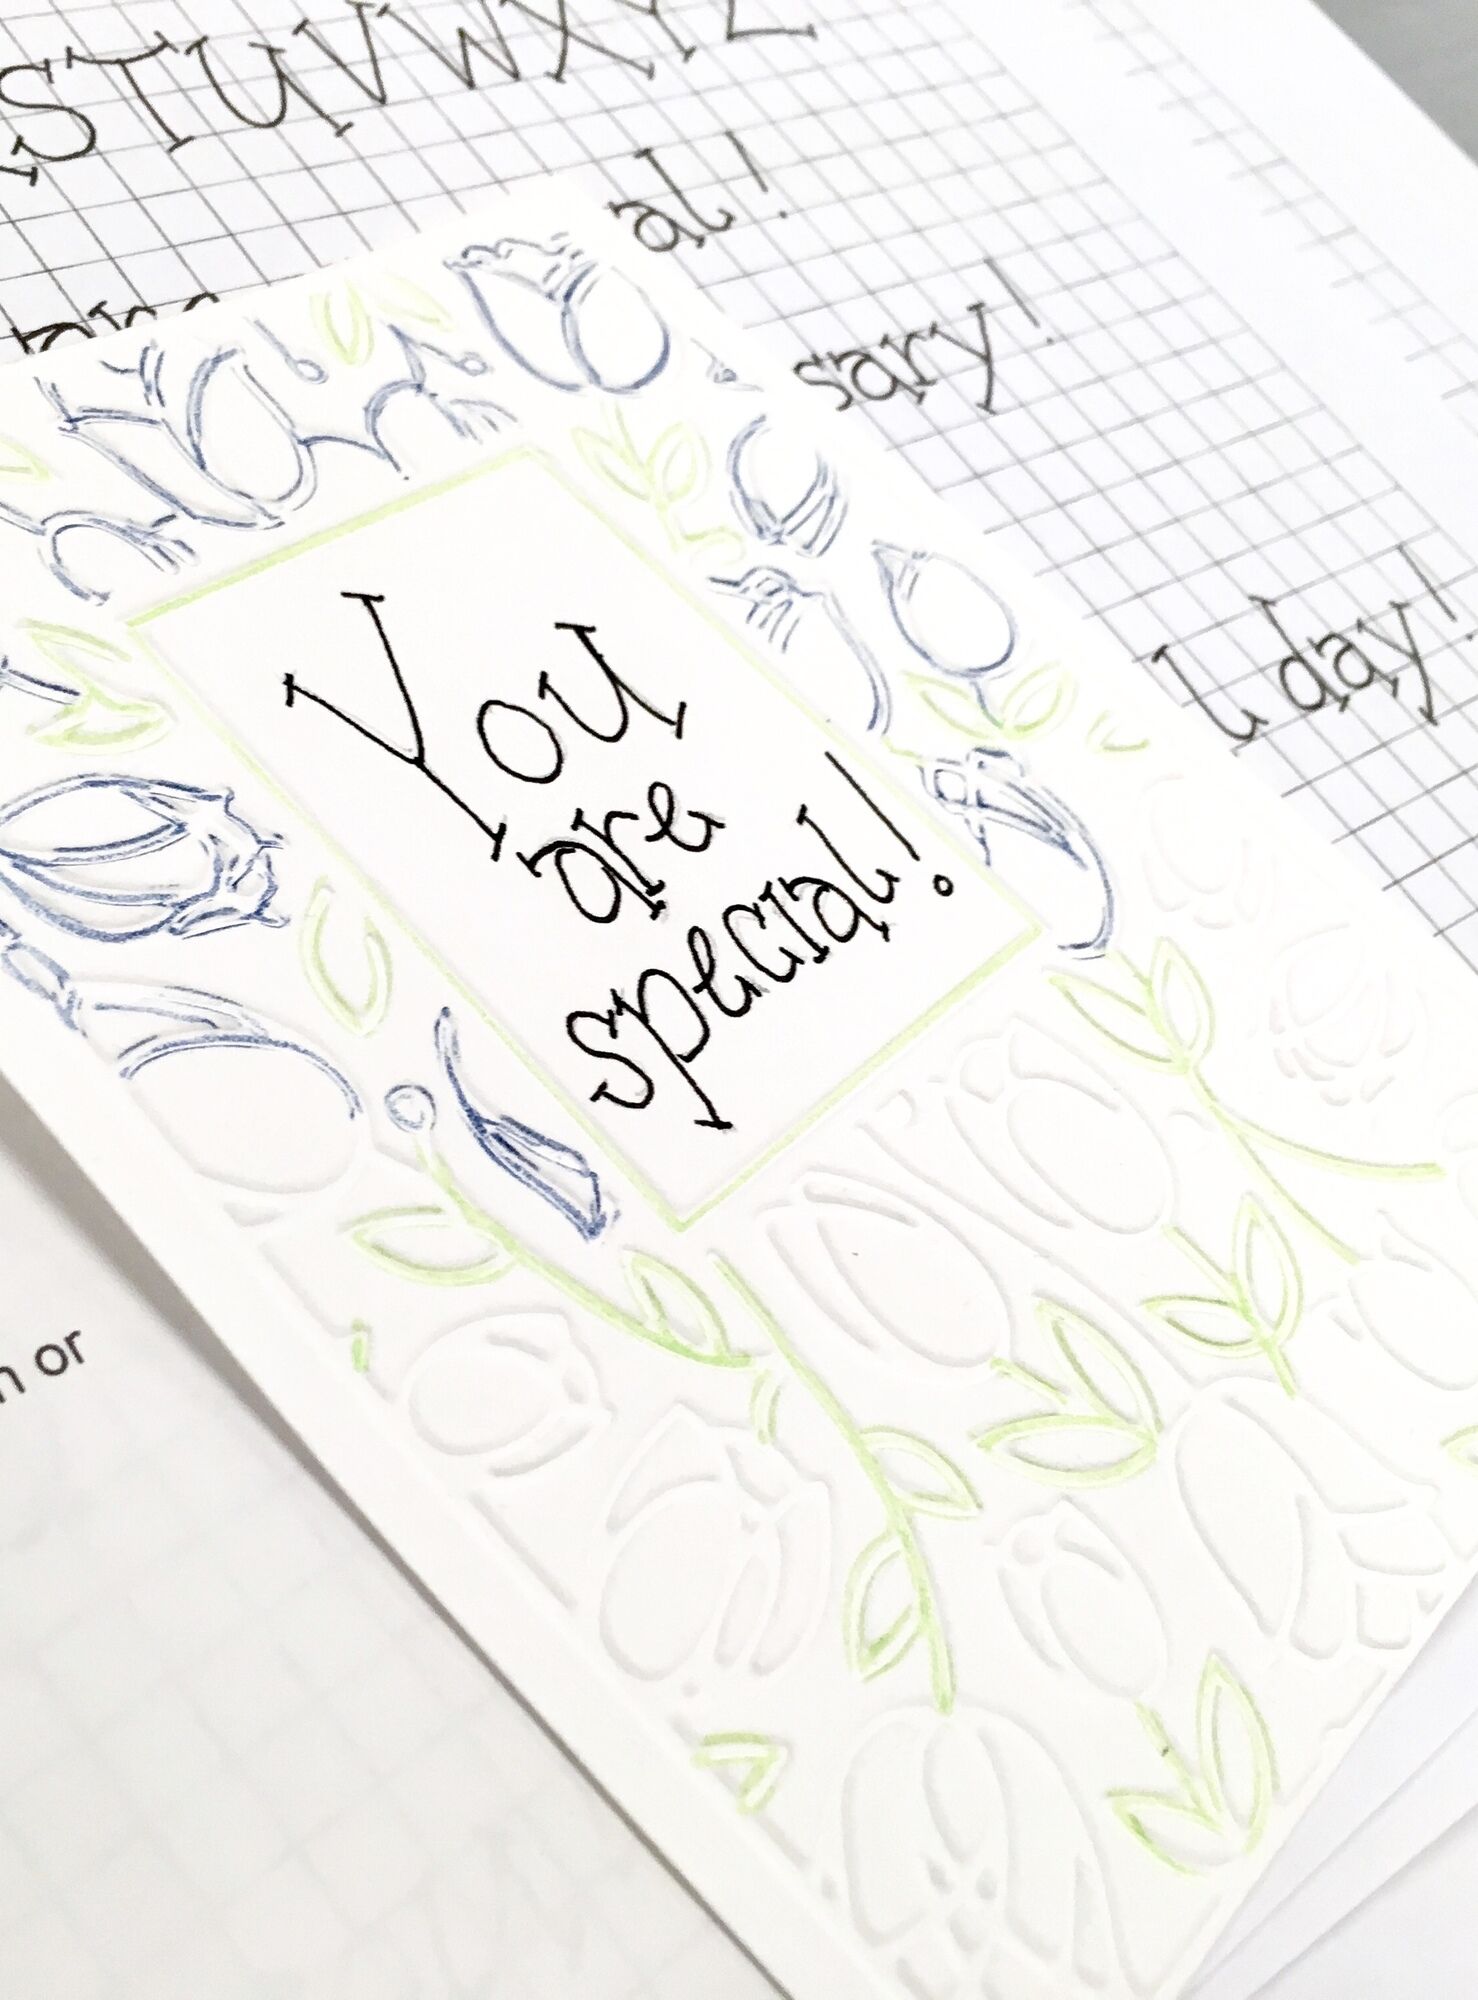 STUVWXYZ
al!
sary!
l day!
You
are
special!
or